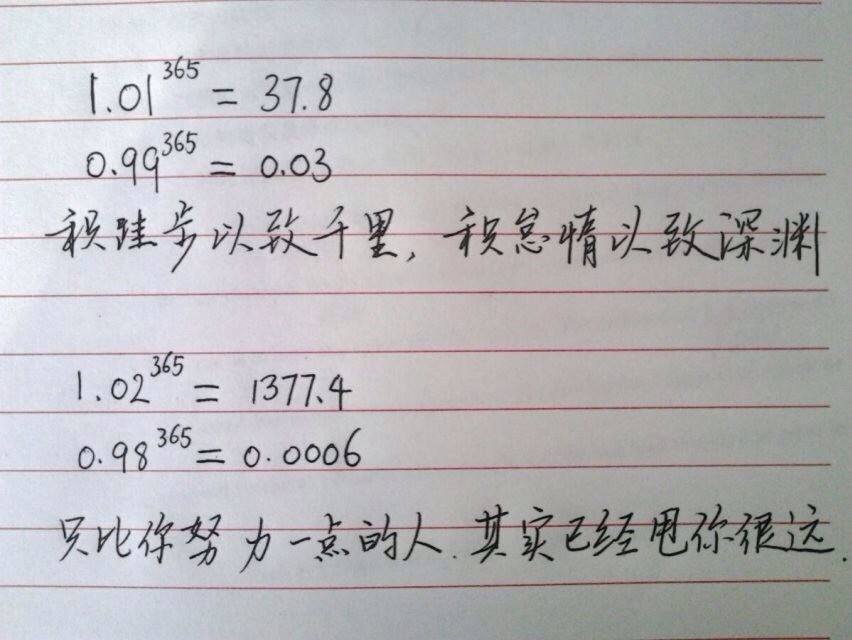 1.01^365 = 37.8
0.99^365 = 0.03
积跬步以致千里，积怠惰以致深渊
1.02^365 = 1377.4
0.98^365 = 0.0006
只比你努力一点的人.其实已经甩你很远.